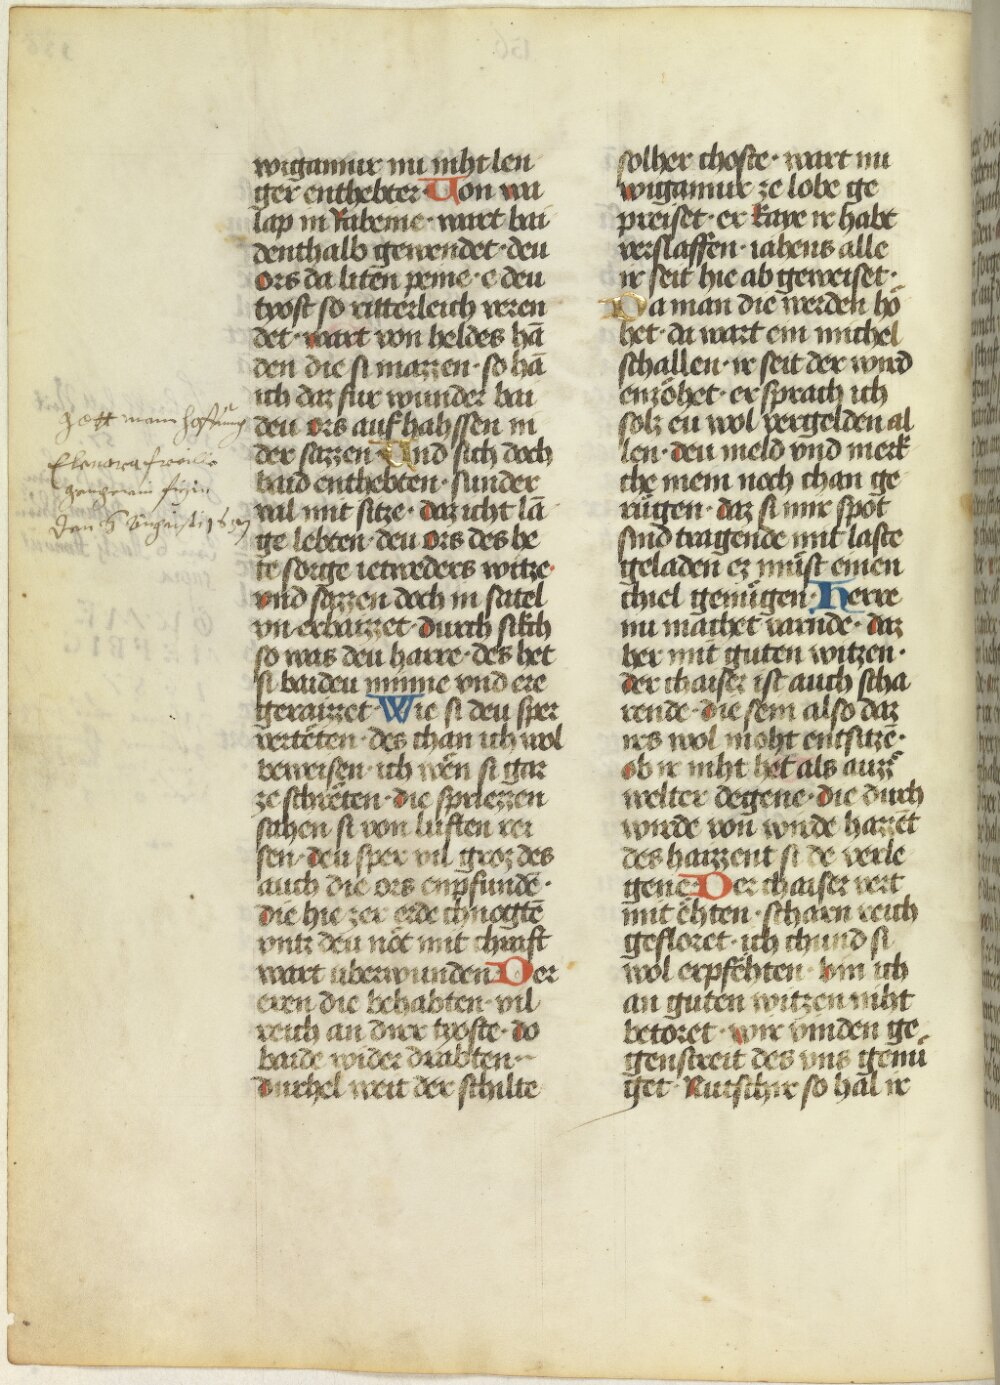 wigamur nu niht len
ger enthebter· Von wa
lap in Rabeme· wart bai
denthalb gewendet· deu
ors da liten peine· e deu
tyost so ritterleich veren
det· wart von heldes hā
den die si mazzen· so hā
ich daz fur wunder bai
deu ors auf hahssen in
der sazzen· Und sich doch
baid enthebten· sunder
val mit sitze· daz icht lā
ge lebten· deu ors des he
te sorge ietweders witze·
vnd sazzen doch in satel
vn erbaizzet· durch sihch
so was deu harre· des het
si baideu minne vnd ere
geraizzet· Wie si deu sper
vertëten· des chan ich wol
beweisen· ich wën si gar
ze schrëten· die spriezzen
sahen si von lüften rei
sen· deu sper vil groz des
auch die ors enpfundē·
die hie zer erde chnogtē
vntz deu nöt mit chraft
wart überwunden· Der
eren die behabten· vil
reich an dirr tyoste· do
baide wider drabten·
durhel weit der schilte
Gott mein Hoffnung
Elenora freille
den 6 Augusti
solher choste· wart nu
wigamur ze lobe ge
preiset· er Kaye ir habt
verslaffen· iahens alle
ir seit hie ab geweiset·
Da man die werden hö
het· da wart ein michel
schallen· ir seit der wird
enzöhet· er sprach ich
solz eu wol vergelden al
len· deu meld vnd merk
che mein noch chan ge
rügen· daz si mir spot
sind tragende mit laste
geladen ez müst einen
chiel genügen· Herre
nu machet varnde· daz
her mit guten witzen·
der chaiser ist auch scha
rende· die sein also daz
irs wol moht entsitzē·
ob ir niht het als auzz
welter degene· die durch
wirde von wirde hazzēt
des hazzent si de verle
gene· Der chaiser vert
mit ëhten· scharn reich
gefloret· ich chund si
wol erpfëhten· bin ich
an guten witzen niht
betoret· wir vinden ge
genstreit des vns genü
get· Rutschir so hal ir